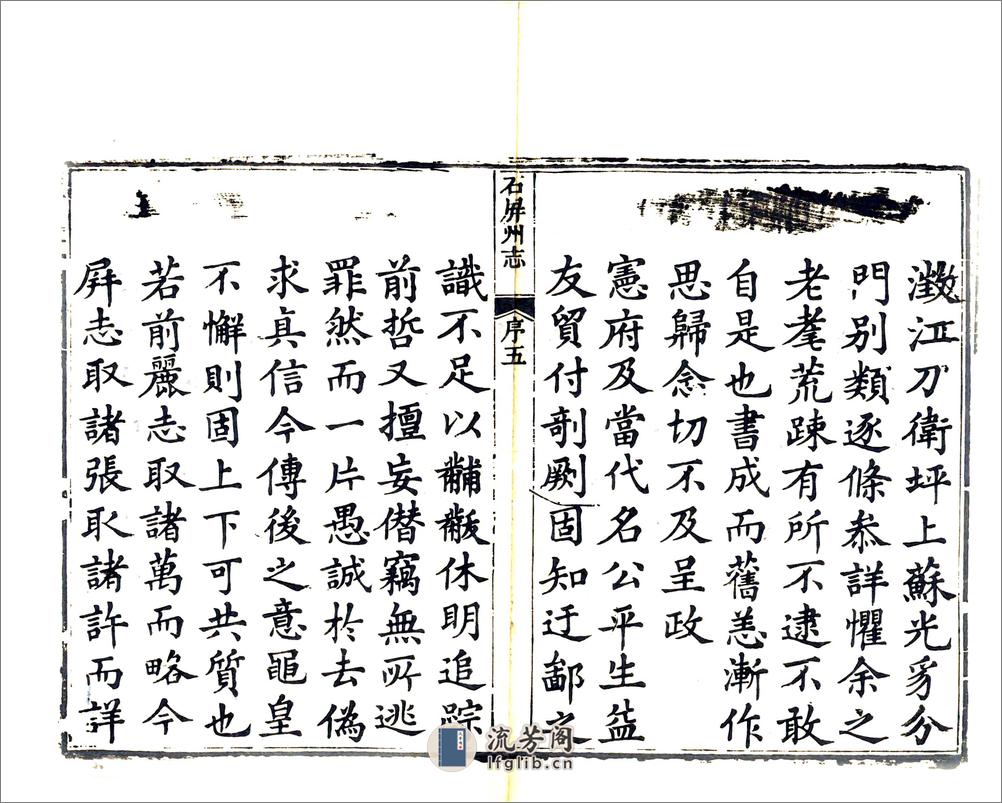 澂江刀衛坪上蘇光豸分
門別類逐條叅詳懼余之
老耄荒踈有所不逮不敢
自是也書成而舊恙漸作
思歸念切不及呈政
憲府及當代名公平生益
友貿付剞劂固知迂鄙之
石屏州志
序五
識不足以黼黻休明追踪
前哲又擅妄僣竊無所逃
罪然而一片愚誠扵去偽
求真信今傳後之意黽皇
不懈則固上下可共質也
若前麗志取諸萬而略今
屛志取諸張取諸許而詳
流芳阁
lfglib.cn